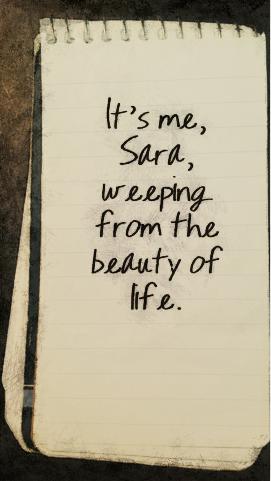 It's me,
Sara,
weeping
from the
beauty of
life.